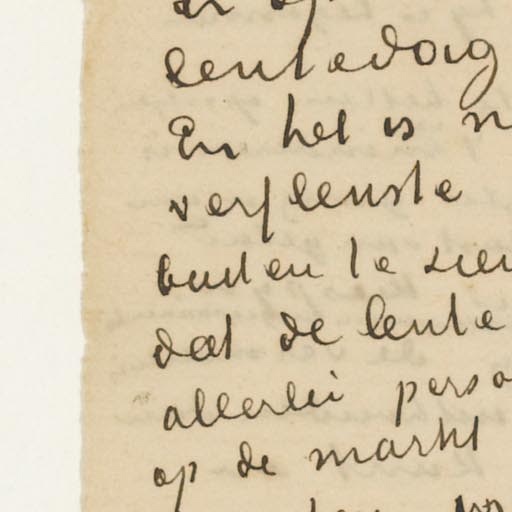 er op
lentedag
En het is n
verfl
buiten te zien
dat de lente
allerlei perso
op de markt